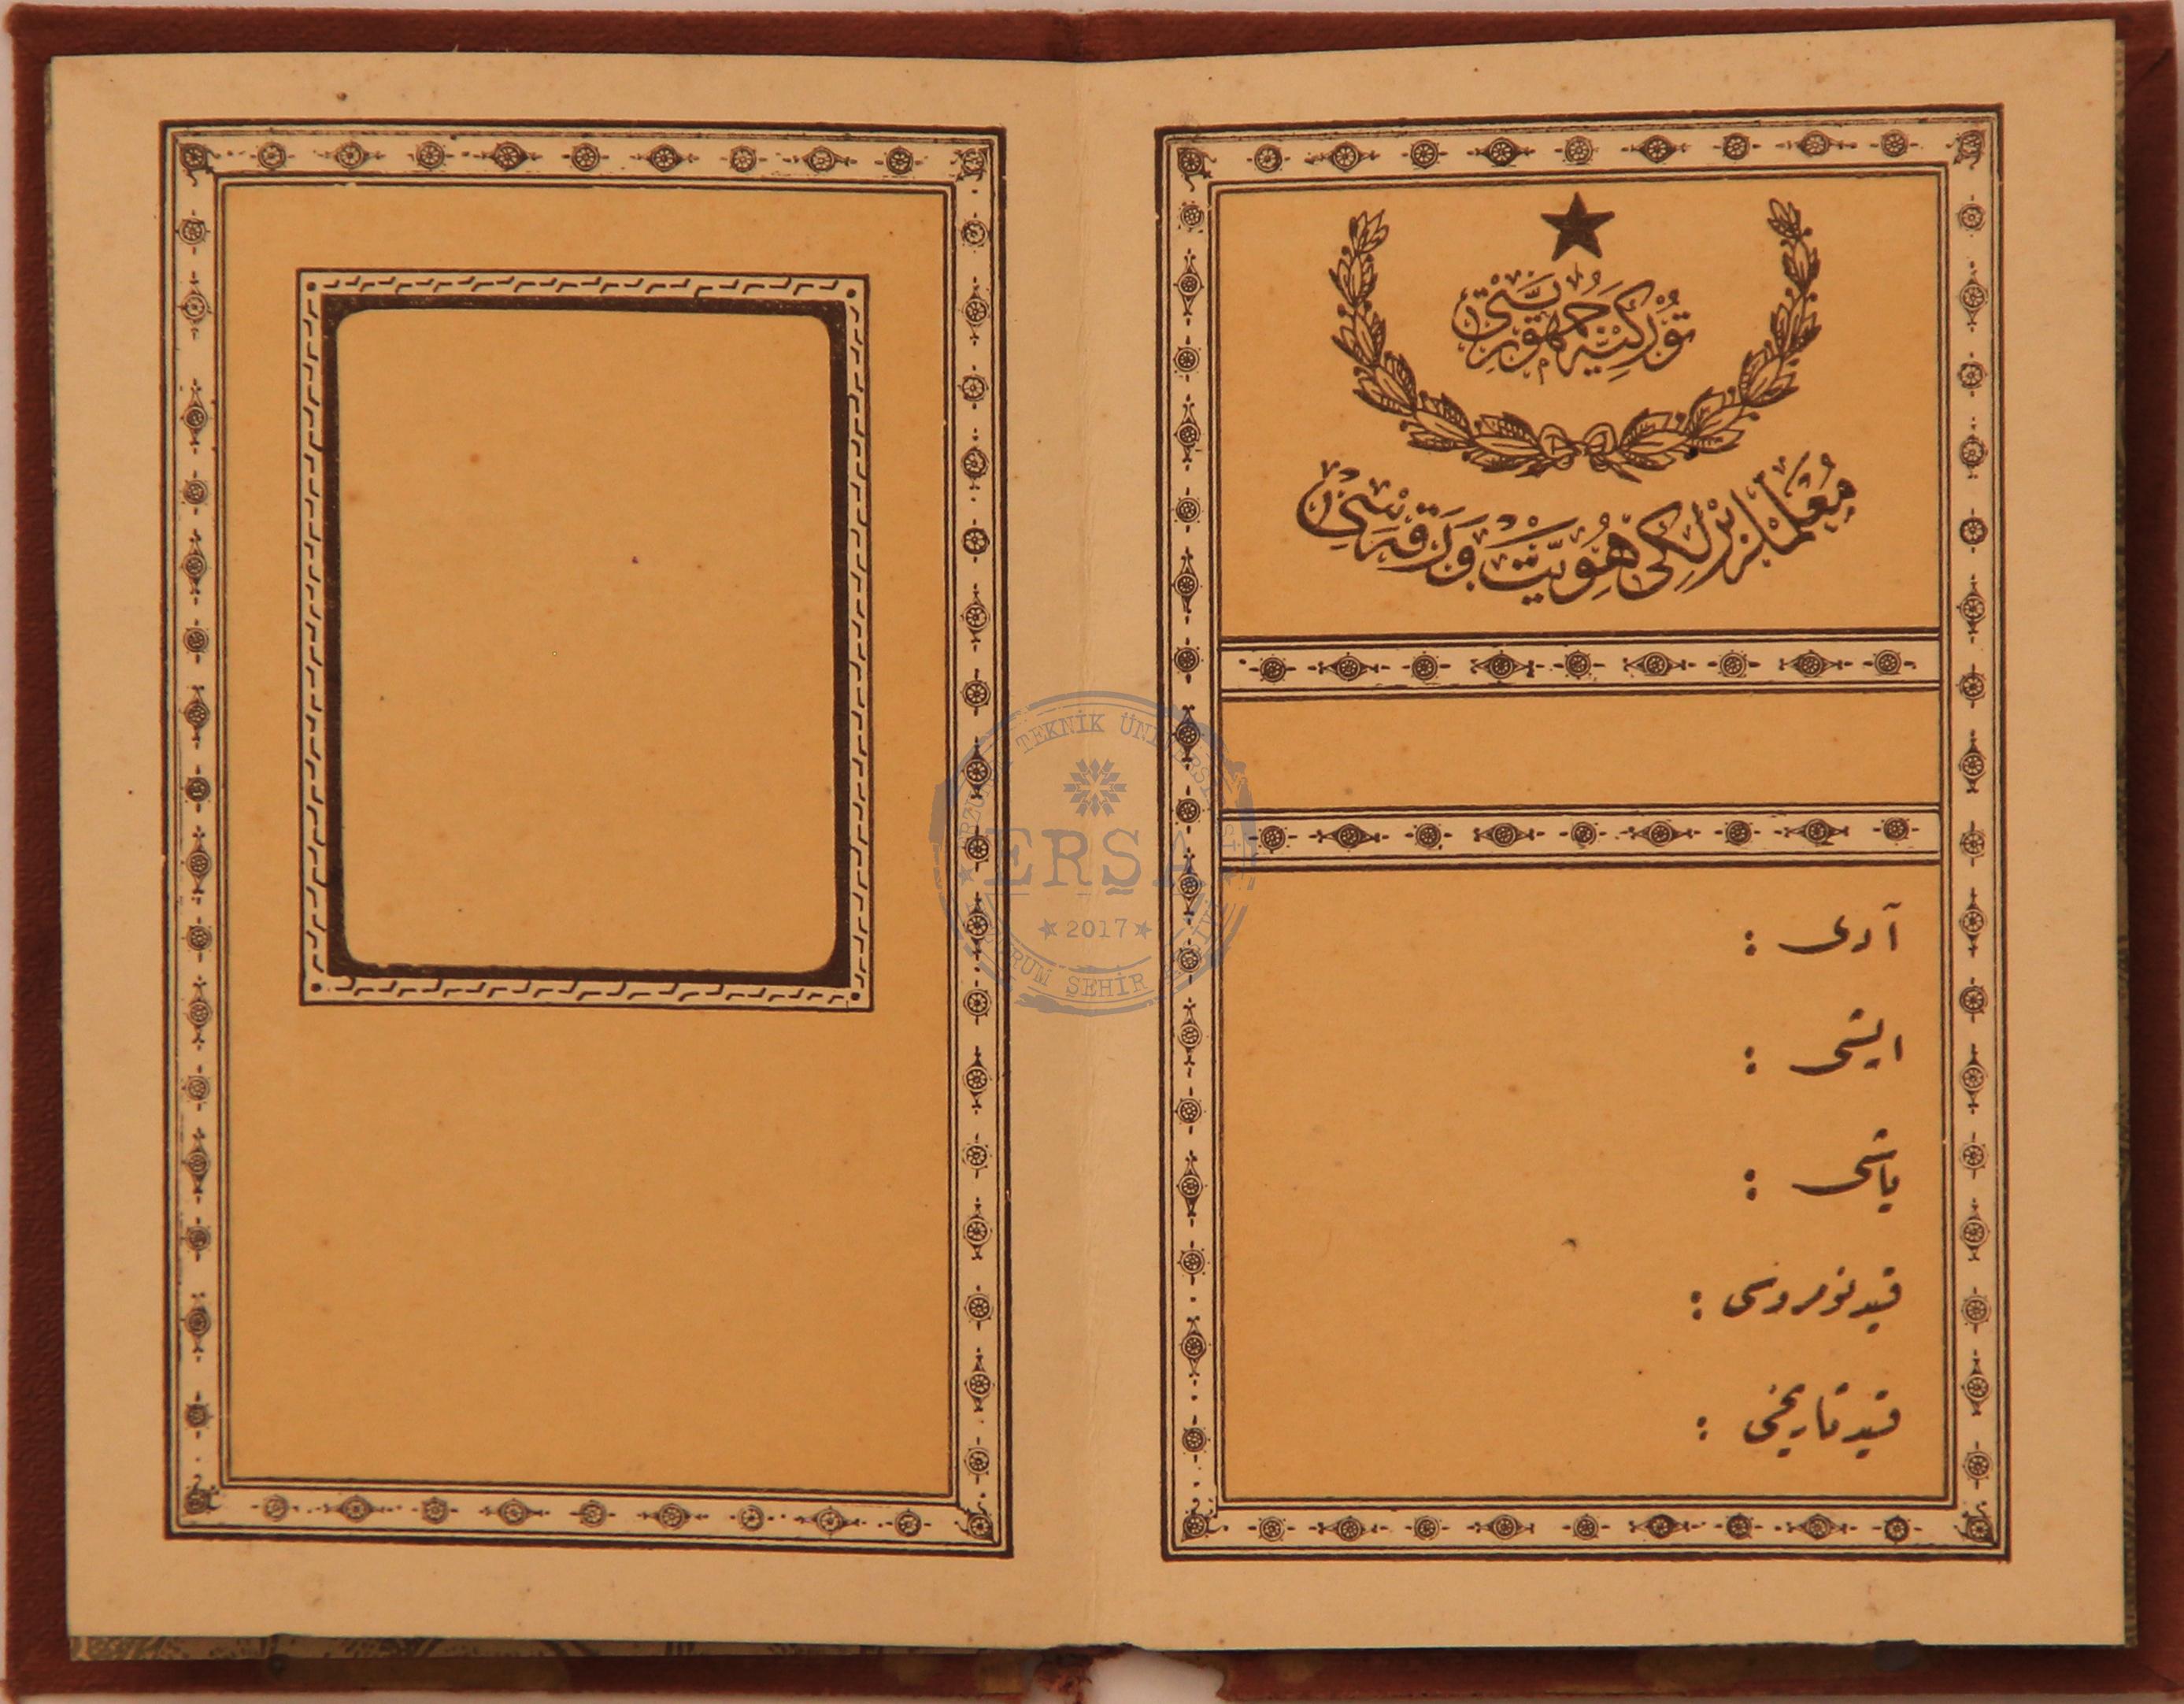 توركیه جمهوریتی
معلملر برلكی هویت ورقه‌سی
آدی :
ایشی :
یاشی :
قید نومروسی :
قید تاریخی :
ERZURUM TEKNİK ÜNİVERSİTESİ
ERŞA
2017
ERZURUM ŞEHİR ARŞİVİ